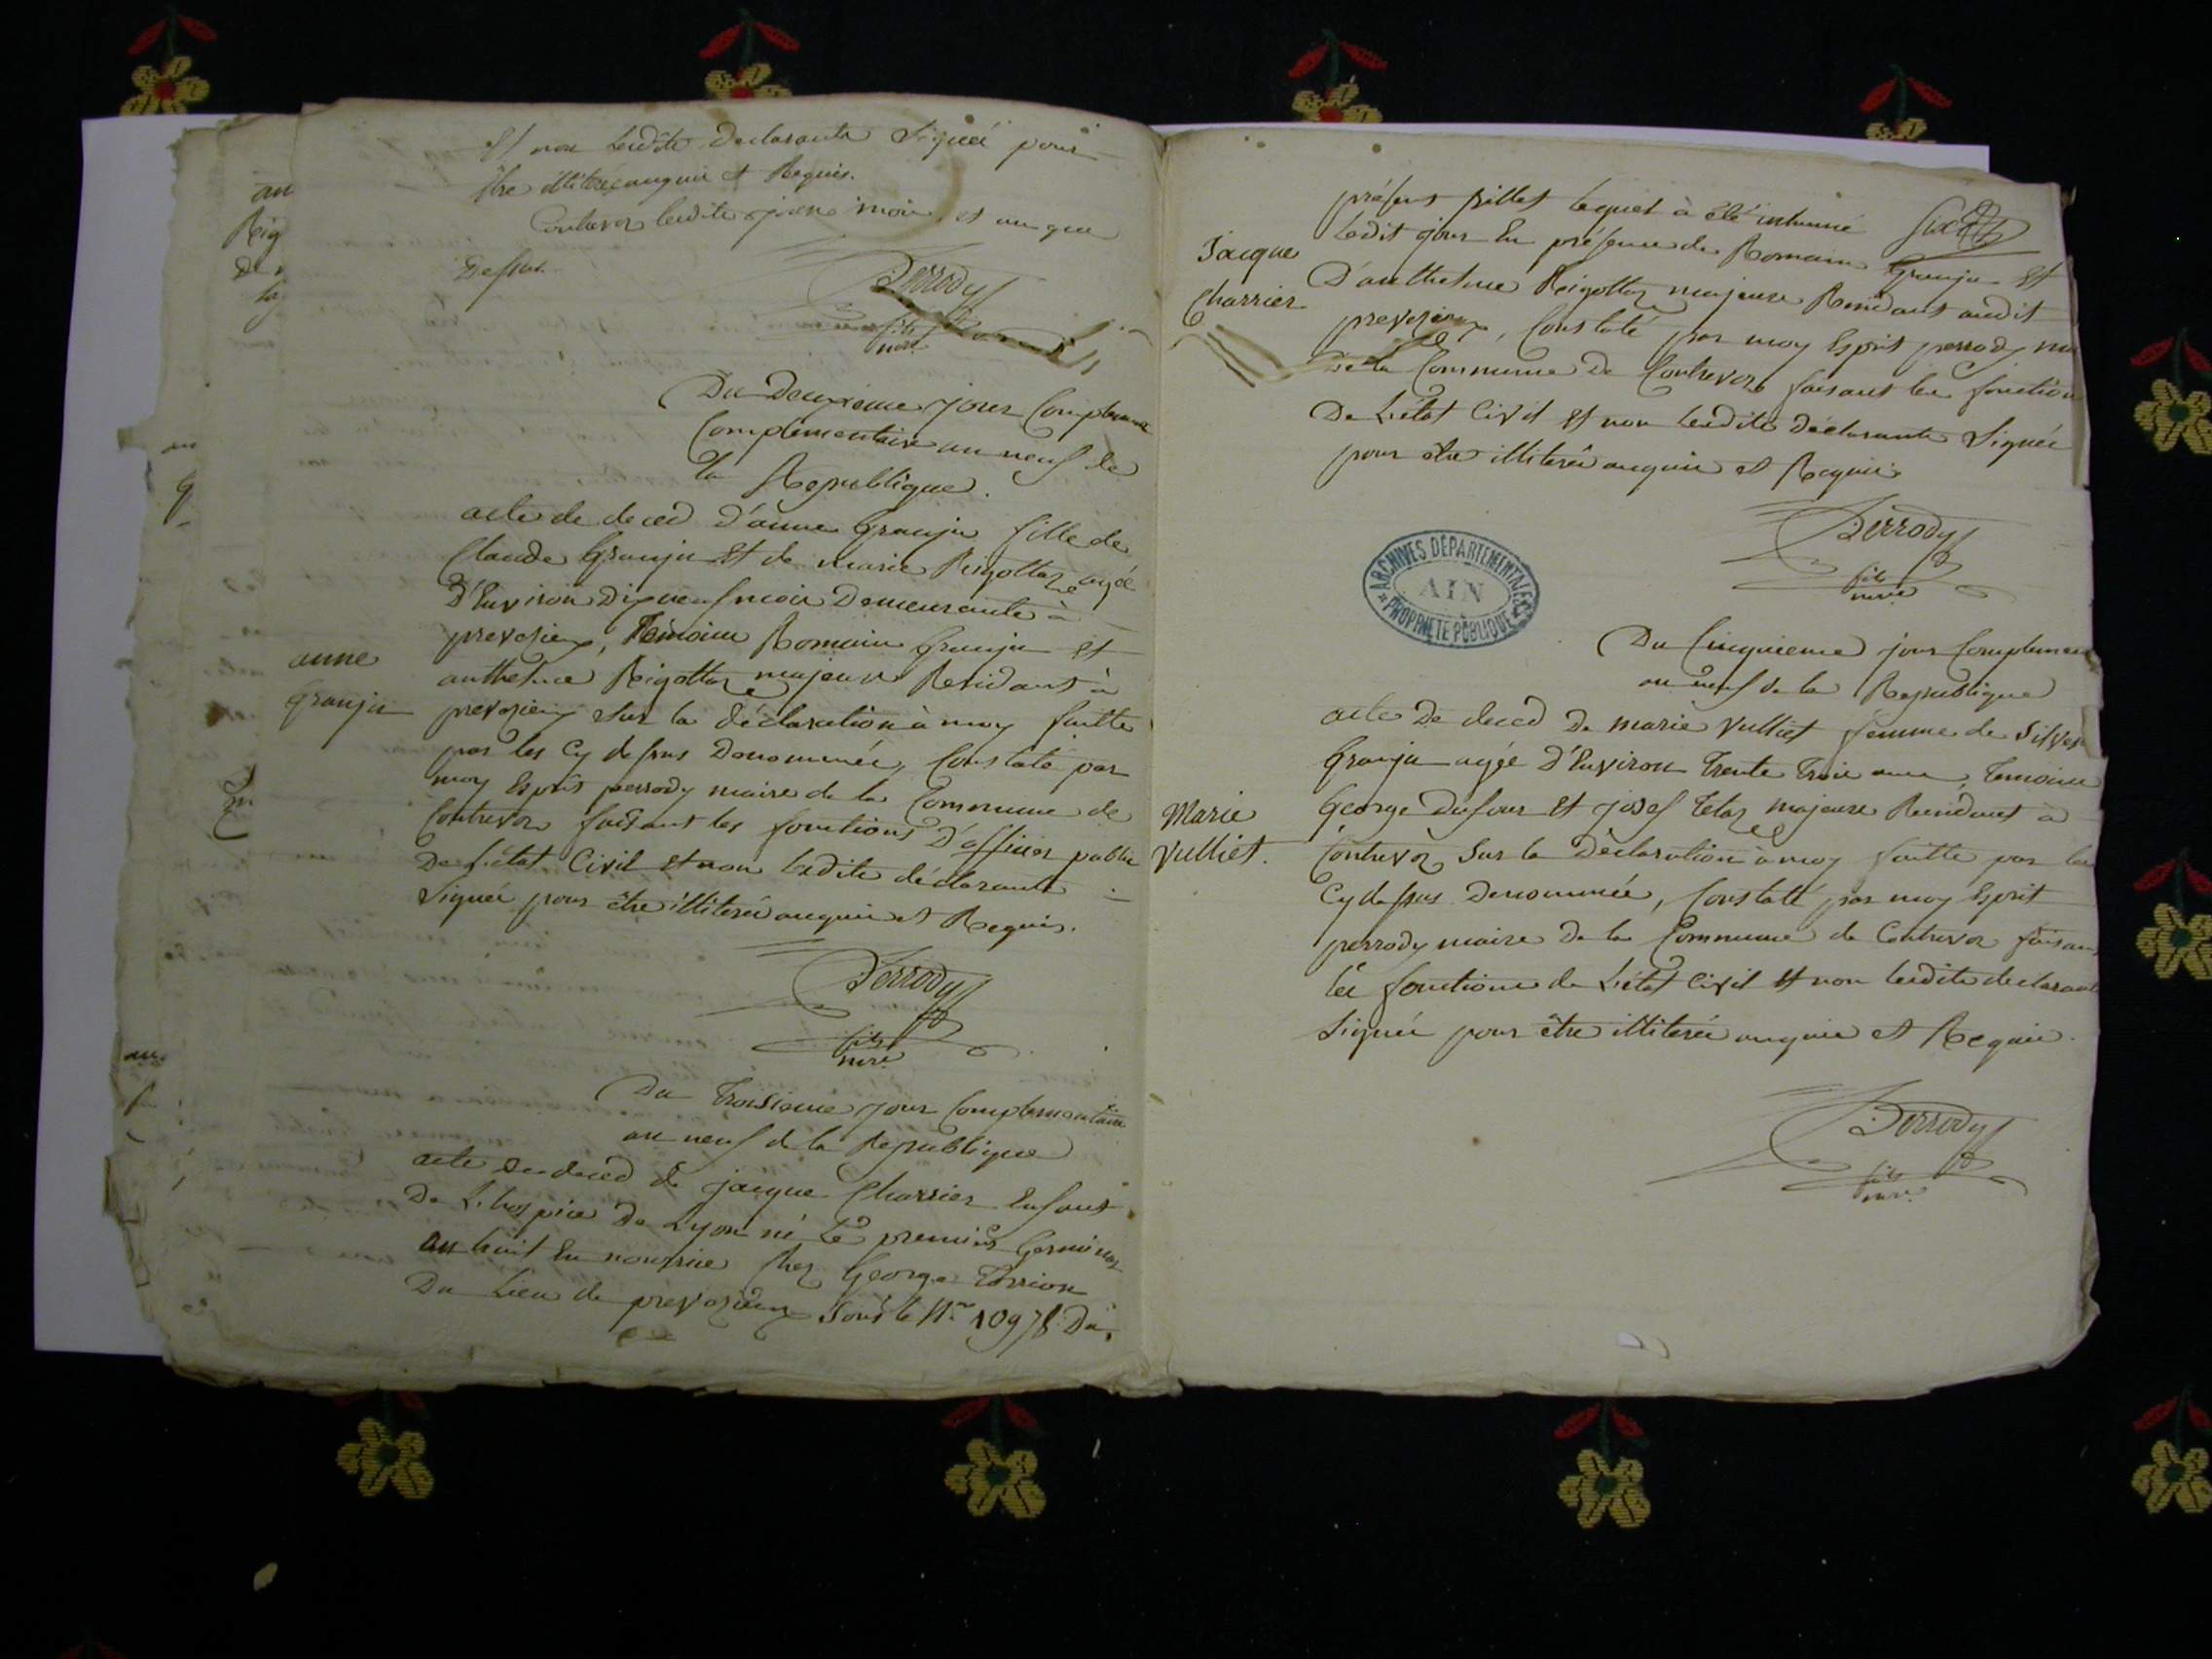 Et non lesdits declarants Signée pour
être illiterée enquis et Requis.
Contrevoz lesdits jour mois et an que
Dessus.
Perrody
fils
mre
Du Deuxieme jour
Complementaire an neuf de
la Republique.
anne
Granju
acte de deced d'anne Granju fille de
Claude Granju et de marie Rigottaz agée
D'Environ Dixneuf mois Demeurante à
prevezieux, Témoins Romain Granju et
anthelme Rigottaz majeurs Residant à
prevezieux sur la déclaration à moy faitte
par les Cy dessus Denommée, Constaté par
moy Esprit perrody maire de la Commune de
Contrevoz faisant les fonctions D'officier public
De L'état Civil et non lesdits déclarants
Signée pour être illiterée enquis et Requis.
Perrody
fils
mre
Du Troisieme jour Complementaire
an neuf de la Republique
acte de deced de jacque Charrier Enfant
De L'hospice De Lyon né Le premier Germinal
an huit En nourrice Chez George
Du Lieu de prevezieux Sous le N° 10978 Du
Jacque
Charrier
présent billet lequel à été inhumé
Ledit jour En présence de Romain Granju Et
D'anthelme Rigottaz majeure Residant audit
prevezieux, Constaté par moy Esprit perrody
De la Commune De Contrevoz faisant les fonction
De L'état Civil et non lesdits déclarants Signée
pour être illiterée enquis et Requis
Perrody
fils
mre
ARCHIVES DÉPARTEMENTALES
AIN
PROPRIÉTÉ PUBLIQUE
Du Cinquieme jour
an neuf de la Republique
Marie
Vulliet.
acte De deced De marie Vulliet femme de
Granju agée D'Environ Trente Trois ans, Temoins
George Dufour et josef Tetaz majeure Residant à
Contrevoz Sur la Déclaration à moy faitte par les
Cy dessus Denommée, Constaté par moy Esprit
perrody maire De la Commune de Contrevoz
les fonctions de L'état Civil et non lesdits
Signée pour être illiterée enquis et Requis.
Perrody
fils
mre